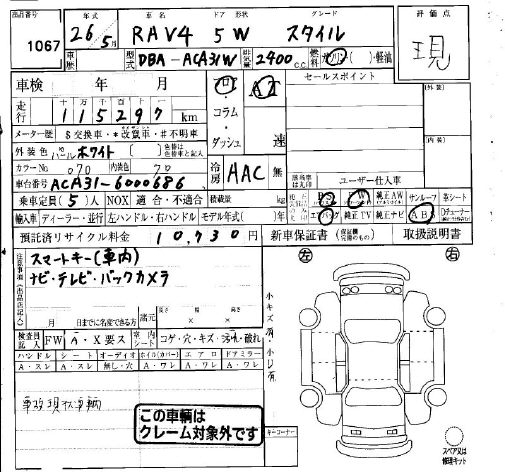 出品番号 1067
年式 26 5月
車歴
車名 RAV4
ドア 形状 5W
グレード スタイル
型式 DBA-ACA31W
排気量 2400 C.C
燃料 ガソリン( )・軽油
評価点 現
車検 年 月
セールスポイント
(外装)
走行 十 万 千 百 十 一
115297 km
コラム・ダッシュ
AT 速
メーター歴 $交換車・*改ざん車・#不明車
外装色 パールホワイト
カラーNo 070 内装色 70
冷房 AAC 無
(内装)
車台番号 ACA31-6000686
ユーザー仕入車
乗車定員(5)人 NOX 適合・不適合 積載量 kg
PS PW 純正AW サンルーフ 革シート
輸入車 ディーラー・並行 左ハンドル・右ハンドル モデル年式( )年
エアバッグ 純正TV 純正ナビ ABS
預託済リサイクル料金 10,730円
新車保証書 取扱説明書
注意事項(出品店記入)
スマートキー(車内)
ナビ・テレビ・バックカメラ
左 右
小キズ有・小凹有
月 日までに名変できる方 諸元 長さ 幅 高さ × ×
検査員記入 FW A・X要ス 室内シート コゲ・穴・キズ・汚れ・破れ
ハンドル シート オーディオ ホイル(カバー) エアロ ドアミラー
A・スレ A・スレ 無し・穴 A・ワレ A・ワレ A・ワレ
事故現状車輌
この車輌は
クレーム対象外です
キーコーナー
スペア又は
修理キット